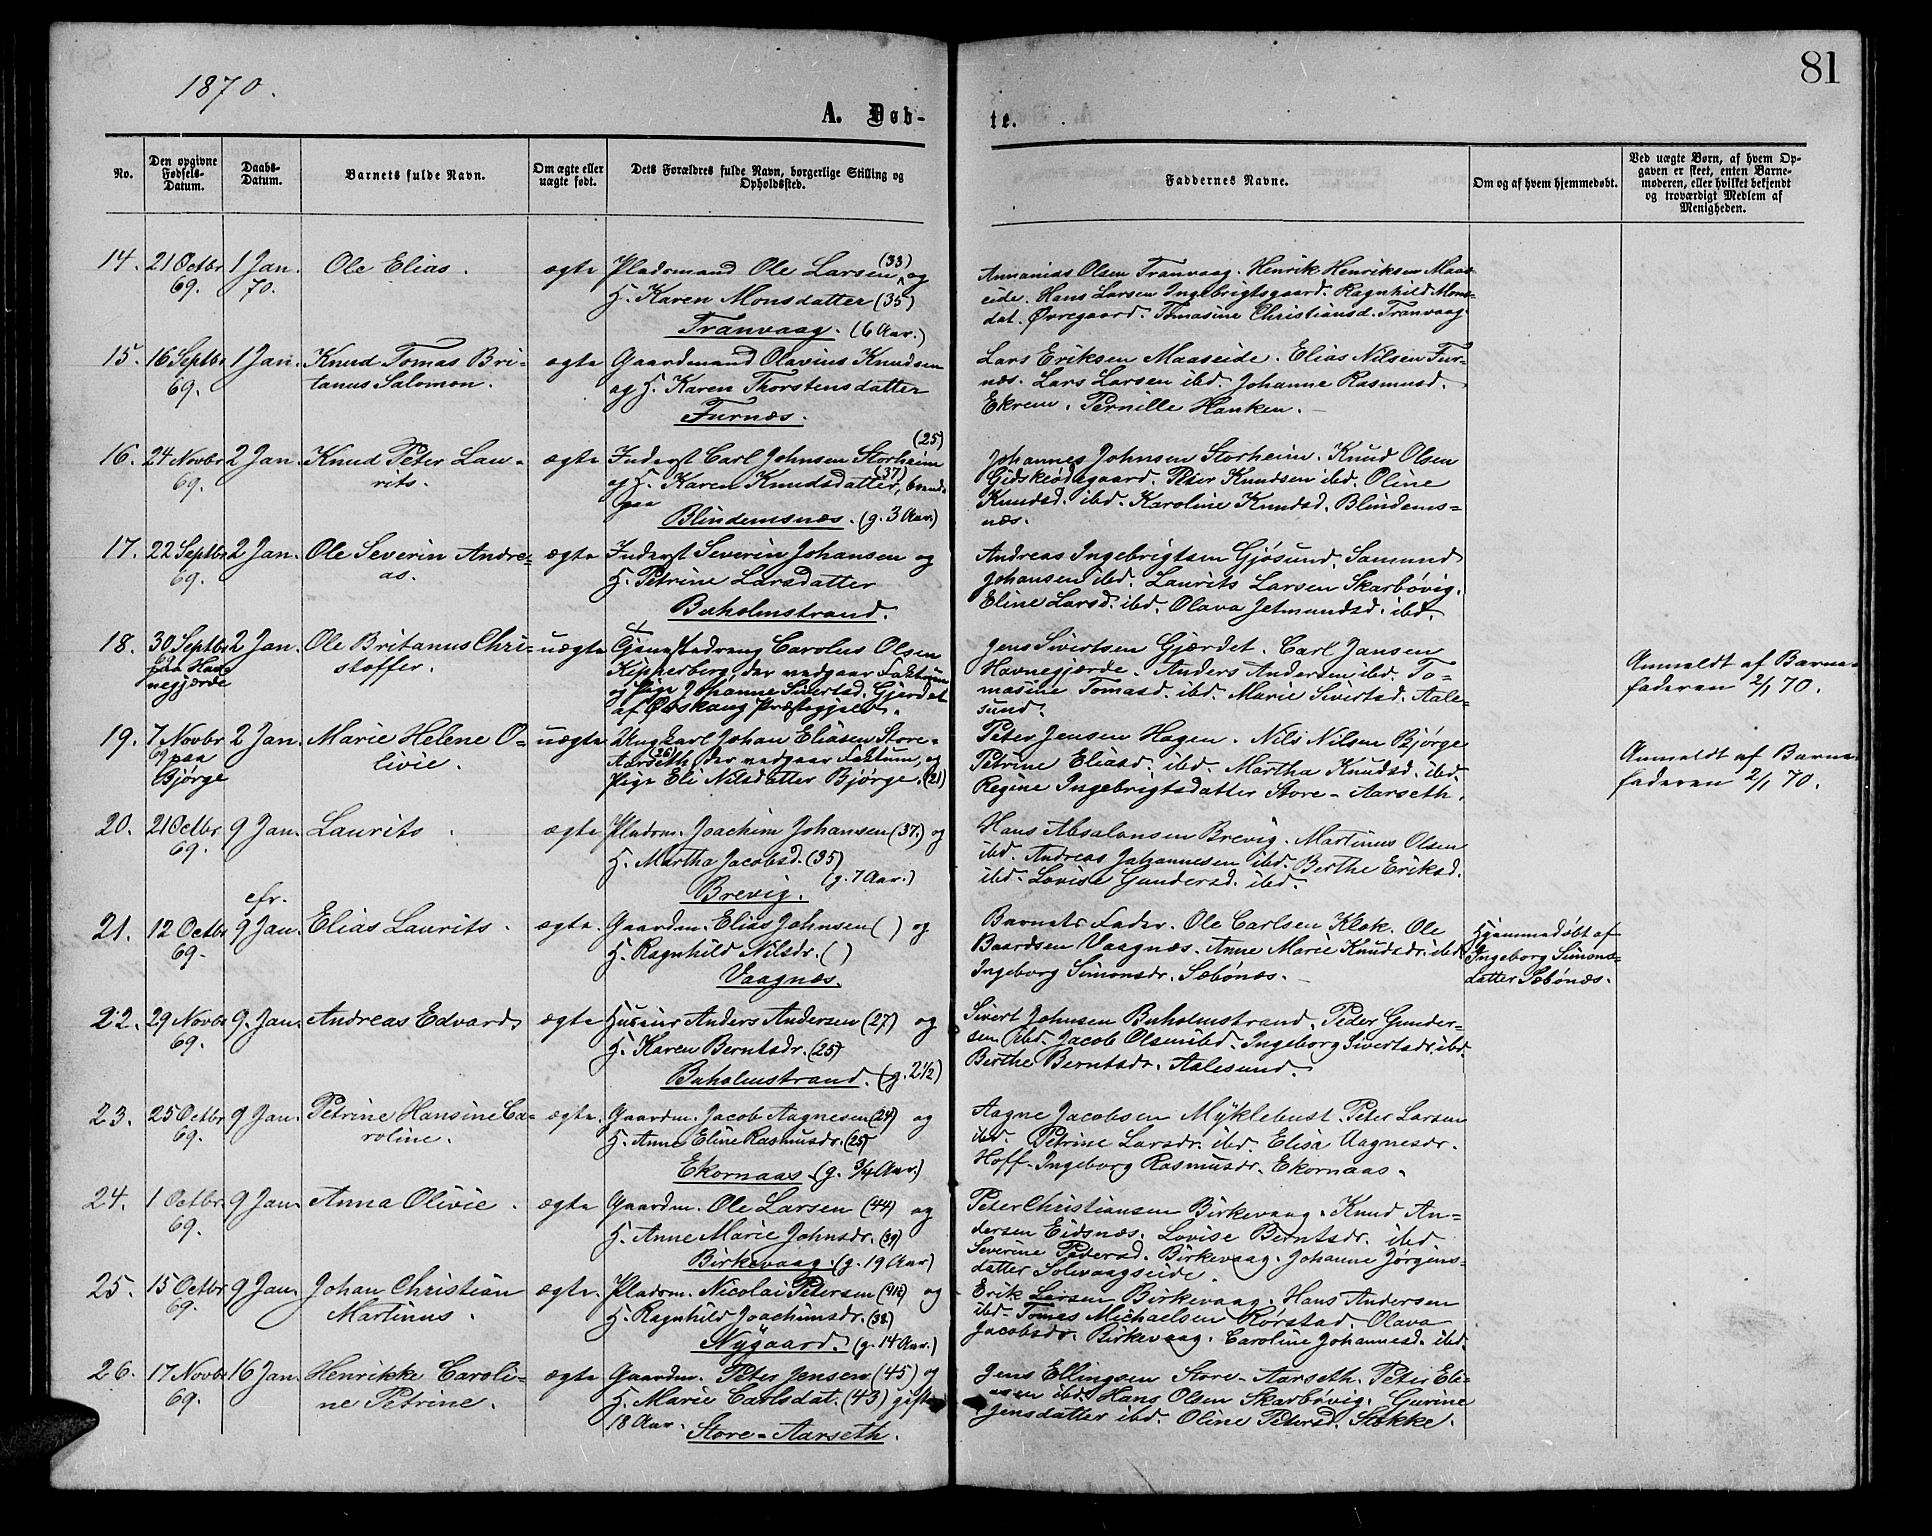 1870.
81
A. Døb-
te.
No.
Den opgivne Fødsels-Datum.
Daabs-Datum.
Barnets fulde Navn.
Om ægte eller uægte født.
Dets Forældres fulde Navn, borgerlige Stilling og Opholdssted.
Faddernes Navne.
Om og af hvem hjemmedøbt.
Ved uægte Børn, af hvem Opgaven er skeet, enten Barnemoderen, eller hvilket bekjendt og troværdigt Medlem af Menigheden.
14. 21 Octbr 69. 1 Jan. 70. Ole Elias. ægte
Pladsmand Ole Larsen (33) og
H. Karen Monsdatter (35)
Tranvaag. (6 Aar.)
Annanias Olsen Tranvaag. Henrik Henriksen Maas-
eide. Hans Larsen Ingebrigtsgaard. Ragnhild Mons-
dat. Øvregaard. Tomasine Christiansd. Tranvaag.
15. 16 Septbr 69. 1 Jan. Knud Tomas Bri-
tanus Salomon. ægte
Gaardmand Olavius Knudsen
og H. Karen Thorstensdatter
Furnæs.
Lars Eriksen Maaseide. Elias Nilsen Fur-
næs. Lars Larsen ibd. Johanne Rasmusd.
Ekrem. Pernille Hanken.
16. 24 Novbr 69. 2 Jan. Knud Peter Lau-
rits. ægte
Inderst Carl Johnsen Storheim (25)
og H. Karen Knudsdatter, (37) boende
paa
Blindemsnæs. (g. 3 Aar.)
Johannes Johnsen Storheim. Knud Olsen
Gidskeødegaard. Peter Knudsen ibd. Oline
Knudsd. ibd. Karoline Knudsd. Blindems-
næs.
17. 22 Septbr 69. 2 Jan. Ole Severin Andre-
as. ægte
Inderst Severin Johansen og
H. Petrine Larsdatter
Buholmstrand.
Andreas Ingebrigtsen Gjøsund. Samund
Johansen ibd. Laurits Larsen Skarbøvig.
Eline Larsd. ibd. Olava Jetmundsd. ibd.
18. 30 Septbr 69 paa Hav-
negjærde 2 Jan. Ole Britanus Chri-
stoffer. uægte
Tjenestedreng Carolus Olsen
Kipperberg, der vedgaar Faktum
og Pige Johanne Sivertsd. Gjærdet
af Ørskoug Præstegjeld.
Jens Sivertsen Gjærdet. Carl Jansen
Havnegjærde. Anders Andersen ibd. To-
masine Tomasd. ibd. Marie Sivertsd. Aale-
sund.
Anmeldt af Barne-
faderen 2/1 70.
19. 7 Novbr 69 paa
Bjørge 2 Jan. Marie Helene O-
livie. uægte
Ungkarl Johan Eliasen Store-
Aarseth, (26) der vedgaar Faktum, og
Pige Eli Nilsdatter Bjørge. (21)
Peter Jensen Hagen. Nils Nilsen Bjørge
Petrine Eliasd. ibd. Martha Knudsd. ibd.
Regine Ingebrigtsdatter Store-Aarseth.
Anmeldt af Barne-
faderen 2/1 70.
20. 21 Octbr 69. 9 Jan. Laurits. ægte
Pladsm. Joachim Johansen (37.) og
H. Martha Jacobsd. (35)
(g. 7 Aar.)
Brevig.
Hans Absalonsen Brevig. Martinus Olsen
ibd. Andreas Johannesen ibd. Berthe Eriksd.
ibd. Lovise Gundersd. ibd.
21. 12 Octbr 69. cfr. 9 Jan. Elias Laurits. ægte.
Gaardm. Elias Johnsen ( ) og
H. Ragnhild Nilsdr. ( )
Vaagnæs.
Barnets Fader. Ole Carlsen Klok. Ole
Baardsen Vaagnæs. Anne Marie Knudsdr. ibd.
Ingeborg Simonsdr. Sæbønæs.
Hjemmedøbt af
Ingeborg Simons-
datter Sæbønæs.
22. 29 Novbr 69. 9. Jan. Andreas Edvard. ægte
Huseier Anders Andersen (27) og
H. Karen Berntsdr. (25)
Buholmstrand. (g. 2 1/2)
Sivert Johnsen Buholmstrand. Peder Gunder-
sen ibd. Jacob Olsen ibd. Ingeborg Sivertsdr. ibd.
Berthe Berntsdr. Aalesund.
23. 25 Octbr 69. 9 Jan. Petrine Hansine Ca-
roline. ægte.
Gaardm. Jacob Aagnesen (24) og
H. Anne Eline Rasmusdr. (25)
Ekornaas. (g. 3/4 Aar.)
Aagne Jacobsen Myklebust. Peter Larsen
ibd. Petrine Larsdr. ibd. Elisa Aagnesdr.
Hoff. Ingeborg Rasmusdr. Ekornaas.
24. 1 Octbr 69. 9 Jan. Anna Olivie. ægte
Gaardm. Ole Larsen (44) og
H. Anne Marie Johnsdr. (39)
Birkevaag. (g. 19 Aar)
Peter Christiansen Birkevaag. Knud An-
dersen Eidsnæs. Lovise Berntsdr. ibd
Severine Pedersd. Birkevaag. Johanne Jørgens-
datter Solevaagseide.
25. 15 Octbr 69. 9 Jan. Johan Christian
Martinus. ægte.
Pladsm. Nicolai Petersen og
H. Ragnhild Joachimsdr. (38)
Nygaard. (g. 14 Aar.)
Erik Larsen Birkevaag. Hans Andersen
ibd. Tomas Michaelsen Rørstad. Olava
Jacobsdr. Birkevaag. Caroline Johannesd. ibd.
26. 17 Novbr 69. 16 Jan. Henrikke Caroli-
ne Petrine. ægte
Gaardm. Peter Jensen (45) og
H. Marie Carlsdat. (43) gifte
18 Aar. Store-Aarseth.
Jens Ellingsen Store-Aarseth. Peter Eli-
asen ibd. Hans Olsen Skarbøvig. Gurine
Jensdatter ibd. Oline Petersd. Stokke.